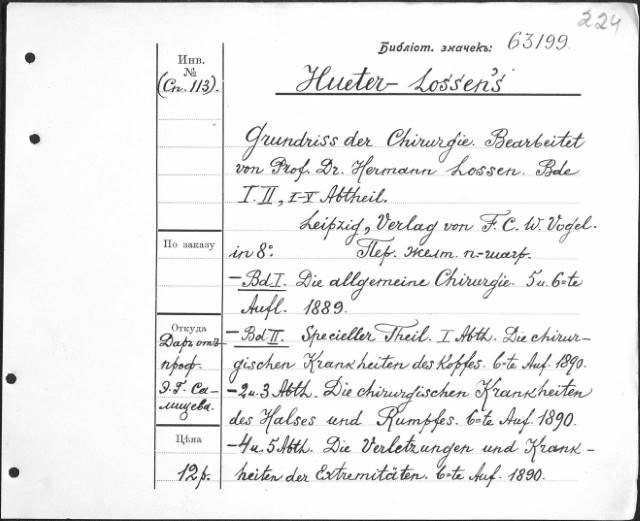 224
Библіот. значекъ: 63199.
Инв.
№
(Сп. 113).
Hueter-Lossen's
Grundriss der Chirurgie. Bearbeitet
von Prof. Dr. Hermann Lossen. Bde
I. II, I-V Abtheil.
Leipzig, Verlag von F. C. W. Vogel.
in 8º. Пер. желт. п.-шагр.
По заказу
— Bd I. Die allgemeine Chirurgie. 5 u. 6=te
Aufl. 1889.
Откуда
Даръ отъ
проф.
Э. Г. Са-
лищева.
— Bd II. Specieller Theil. I Abth. Die chirur-
gischen Krankheiten des Kopfes. 6=te Auf. 1890.
— 2 u. 3 Abth. Die chirurgischen Krankheiten
des Halses und Rumpfes. 6=te Auf. 1890.
Цѣна
12 р.
— 4 u. 5 Abth. Die Verletzungen und Krank-
heiten der Extremitäten. 6=te Auf. 1890.